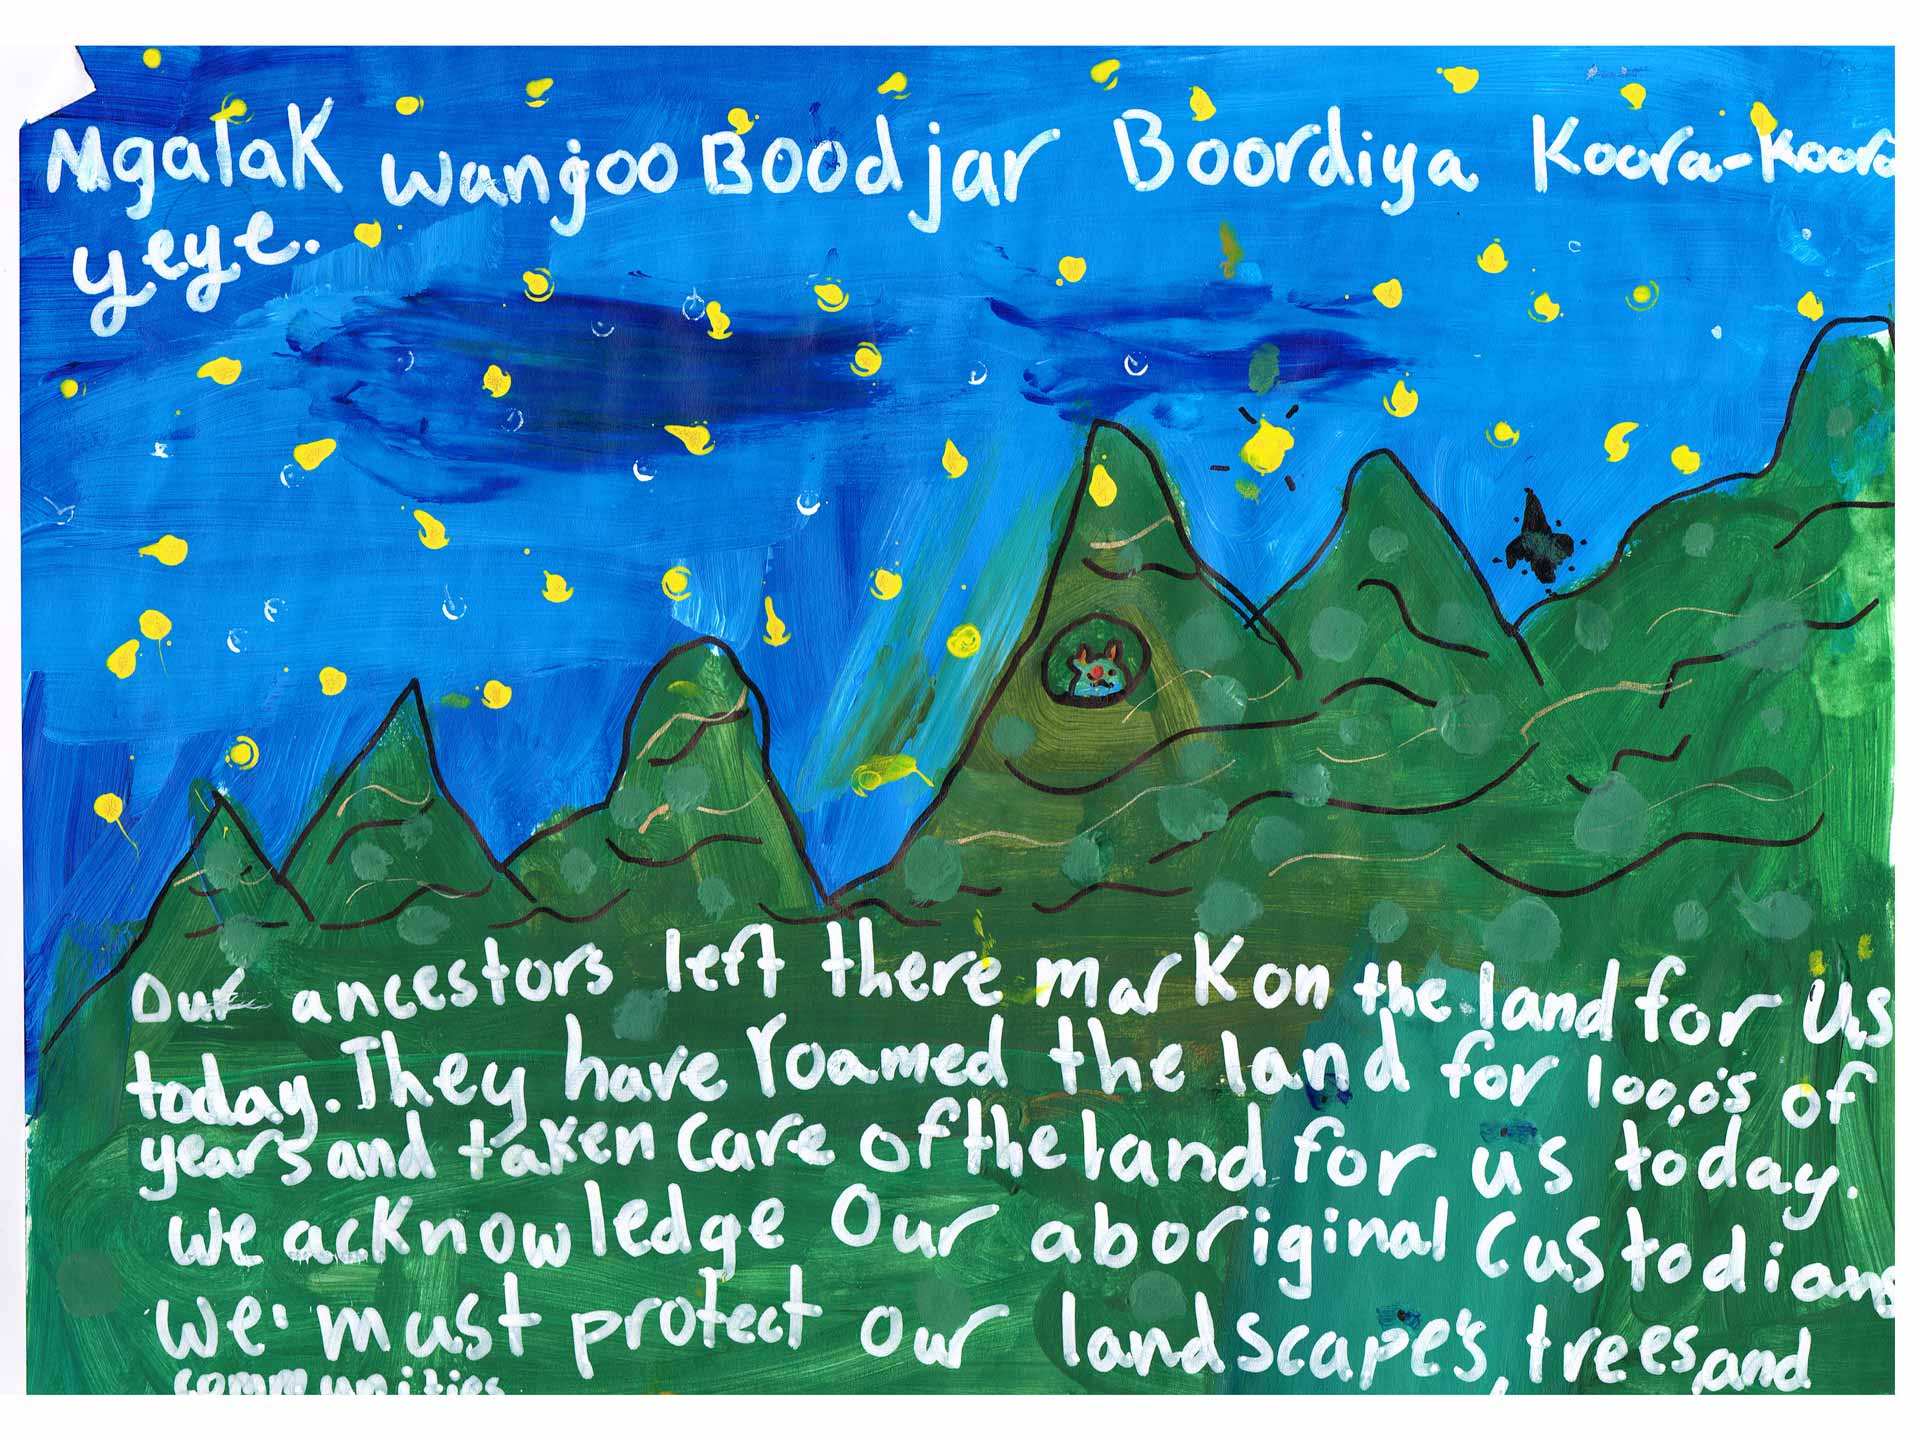 Ngalak wangoo Boodjar Boordiya Koora-Koora
yeye.
Our ancestors left there mark on the land for us
today. They have roamed the land for 100,0's of
years and taken care of the land for us today.
we acknowledge our aboriginal Custodians
we must protect our landscape's, trees, and
communities